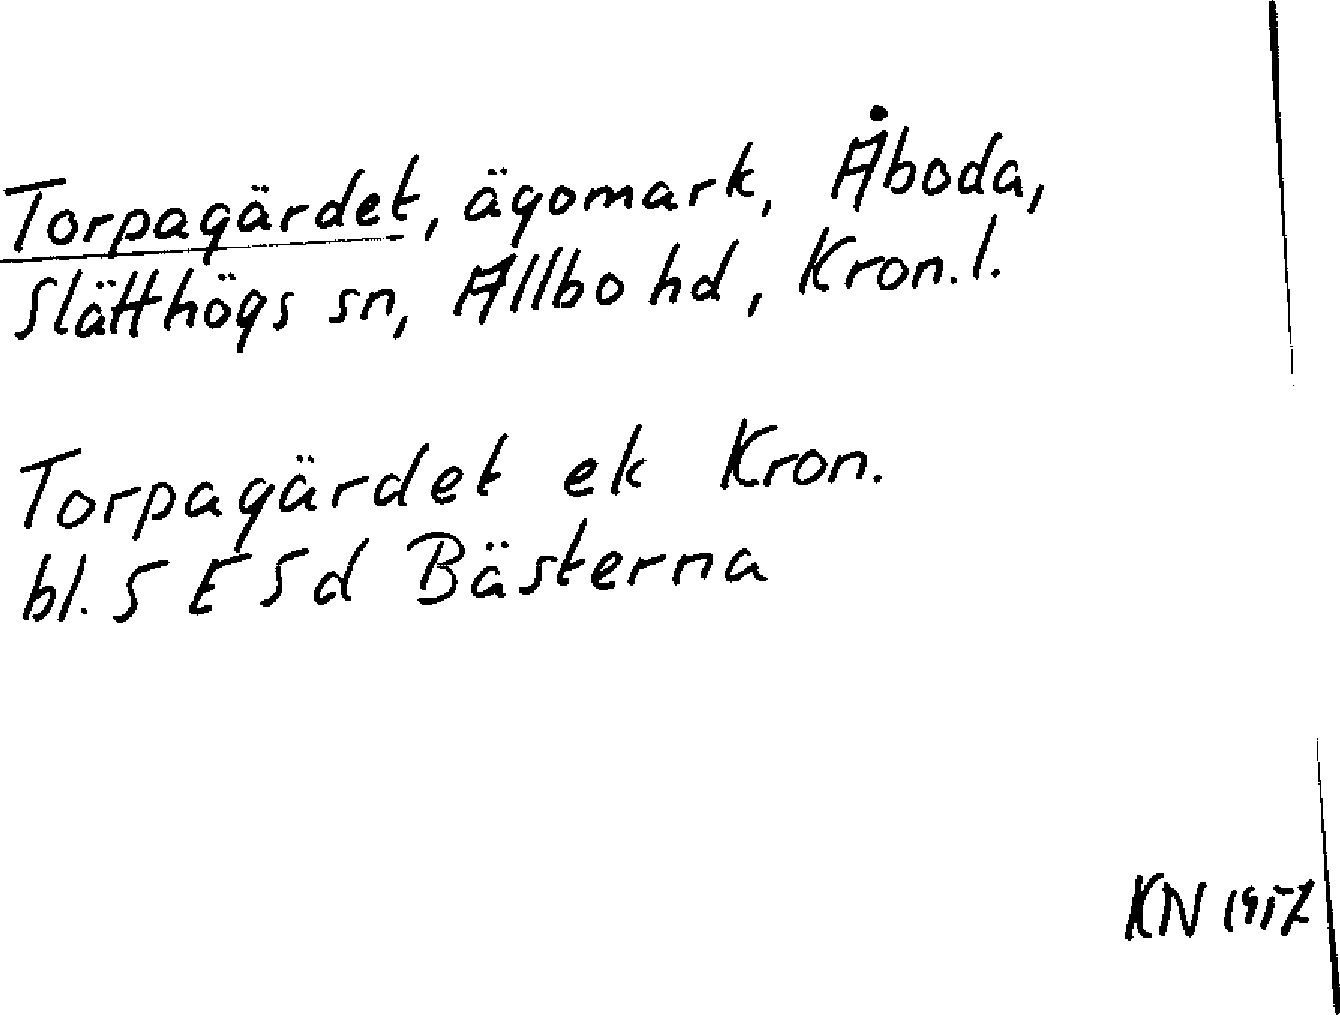 Torpagärdet, ägomark, Åboda,
Slätthögs sn, Allbo hd, Kron.l.
Torpagärdet ek Kron.
bl. 5 E 5 d Bästerna
KN 1957